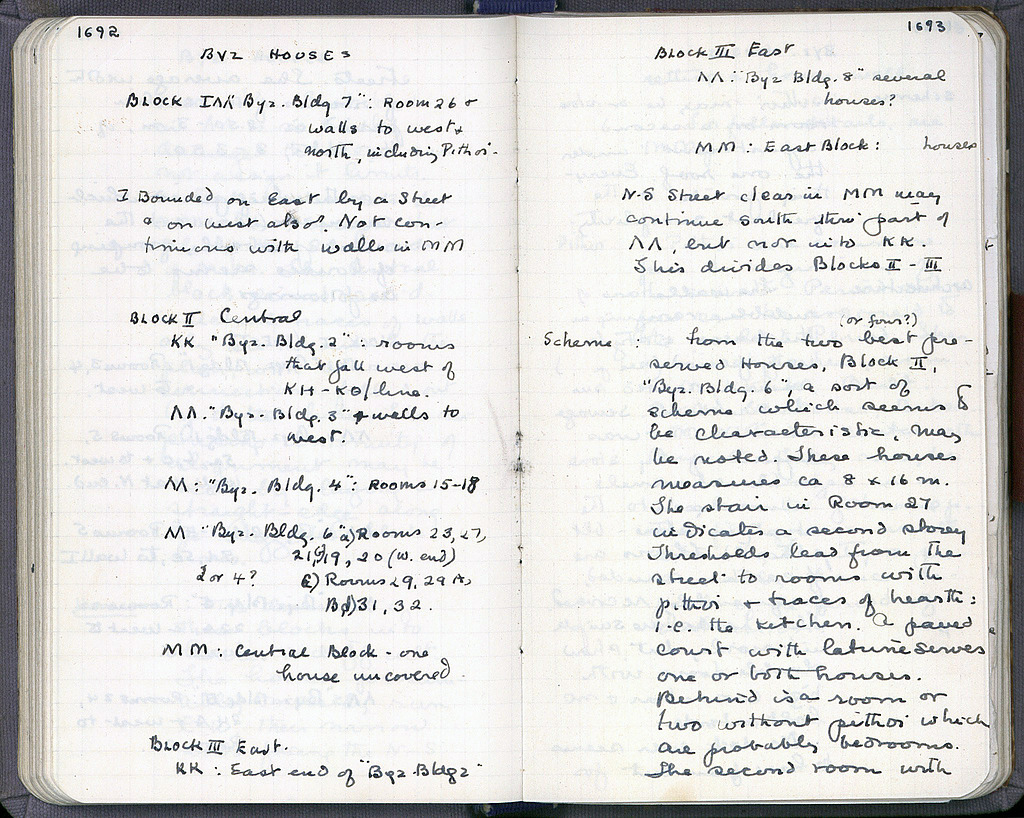 1692
BYZ HOUSES
BLOCK I ΛΛ "Byz. Bldg 7": Room 26 &
walls to west &
north, including Pithoi.
I Bounded on East by a Street
& on west also? Not con-
tinuous with walls in MM
BLOCK II Central
KK "Byz. Bldg. 2": rooms
that fall west of
KH - KΘ/line.
ΛΛ. "Byz. Bldg. 3" & walls to
west.
ΛΛ: "Byz. Bldg. 4": Rooms 15-18
M "Byz. Bldg. 6" a) Rooms 23, 27,
21, 19, 20 (W. end)
2 or 4? c) Rooms 29, 29A,
B d) 31, 32.
MM: Central Block - one
house uncovered.
BLOCK III East.
KK: East end of "Byz. Bldg 2"
1693
BLOCK III East
ΛΛ: "Byz Bldg. 8" several
houses?
MM: East Block: houses
N-S Street clear in MM may
continue south thru part of
ΛΛ, but not into KK.
This divides Blocks II - III
(or four?)
Scheme: from the two best pre-
served Houses, Block II,
"Byz. Bldg. 6", a sort of
scheme which seems to
be characteristic, may
be noted. These houses
measures ca 8 x 16 m.
The stair in Room 27
indicates a second storey
Thresholds lead from the
street to rooms with
pithoi & traces of hearth:
i.e. the kitchen. A paved
Court with latrine serves
one or both houses.
Behind is a room or
two without pithoi which
are probably bedrooms.
The second room with